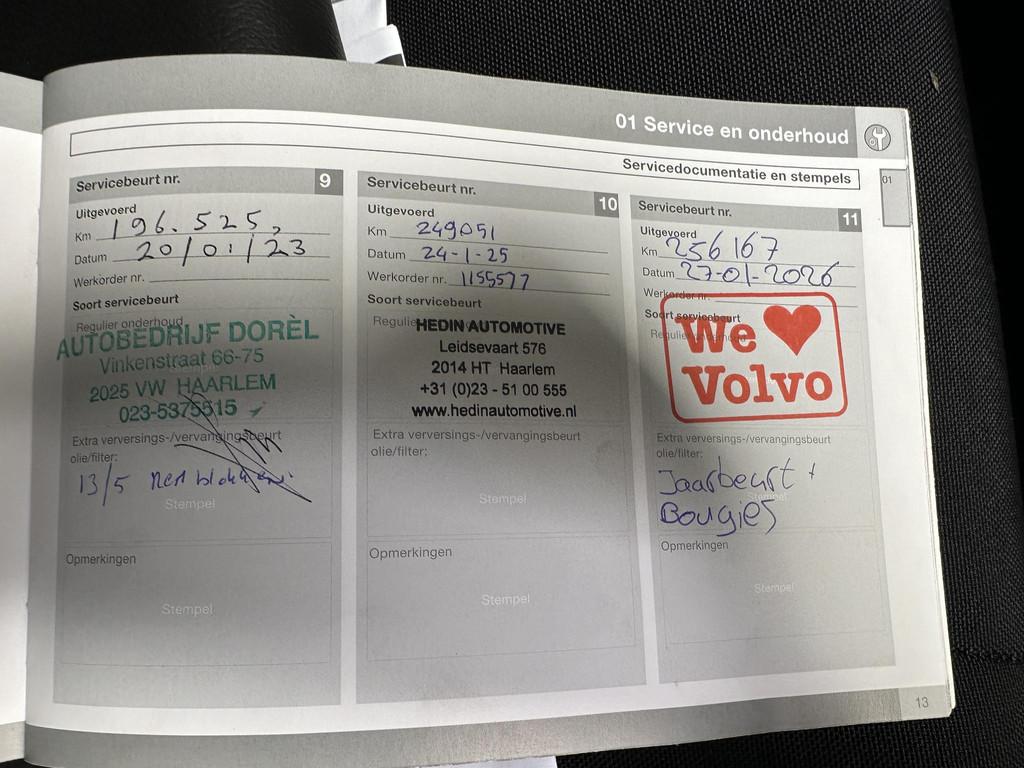 01 Service en onderhoud
Servicedocumentatie en stempels
01
Servicebeurt nr. 9
Uitgevoerd
Km 196.525,
Datum 20/01/23
Werkorder nr.
Soort servicebeurt
Regulier onderhoud
AUTOBEDRIJF DORÈL
Vinkenstraat 66-75
2025 VW HAARLEM
023-5375515
Extra verversings-/vervangingsbeurt
olie/filter:
13/5
Stempel
Opmerkingen
Stempel
Servicebeurt nr. 10
Uitgevoerd
Km 249051
Datum 24-1-25
Werkorder nr. 1155577
Soort servicebeurt
HEDIN AUTOMOTIVE
Leidsevaart 576
2014 HT Haarlem
+31 (0)23 - 51 00 555
www.hedinautomotive.nl
Extra verversings-/vervangingsbeurt
olie/filter:
Stempel
Opmerkingen
Stempel
Servicebeurt nr. 11
Uitgevoerd
Km 256167
Datum 27-01-2026
Werkorder nr.
Soort servicebeurt
We ♥
Volvo
Extra verversings-/vervangingsbeurt
olie/filter:
Jaarbeurt +
Bougies
Stempel
Opmerkingen
Stempel
13